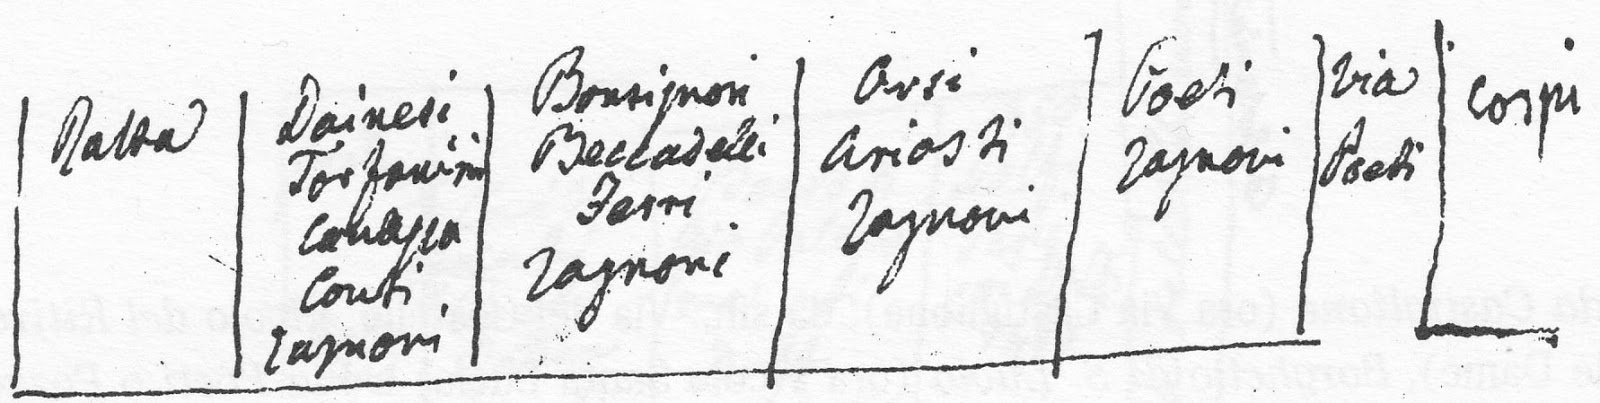 Ratta
Dainesi
Torfanini
Conti
Zagnoni
Bonsignori
Beccadelli
Ferri
Zagnoni
Orsi
Ariosti
Zagnoni
Poeti
Zagnoni
Via
Poeti
Cospi